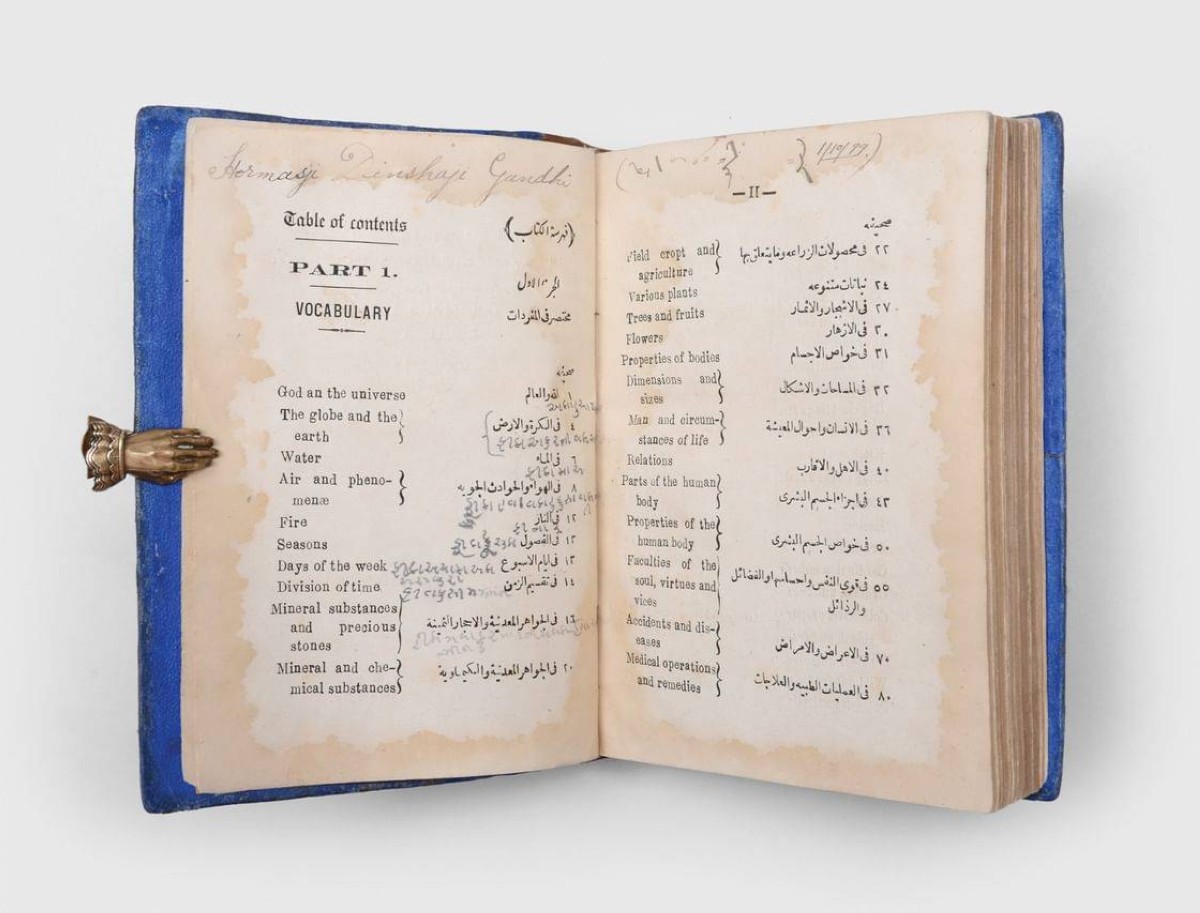 Hormasji Dinshaji Gandhi
Table of contents (فهرسة الكتاب)
PART 1. الجزء الاول
VOCABULARY مختصر فى المفردات
صحيفه
God an the universe ١ الله والعالم
The globe and the ٤ فى الكرة والارض
earth
Water ٦ فى الماء
Air and pheno- ٨ فى الهواء والحوادث الجويه
menæ
Fire ١٢ فى النار
Seasons ١٢ فى الفصول
Days of the week ١٣ فى ايام الاسبوع
Division of time ١٤ فى تقسيم الزمن
Mineral substances
and precious ١٦ فى الجواهر المعدنية والاحجار الثمينة
stones
Mineral and che- ٢٠ فى الجواهر المعدنية والكيماوية
mical substances
1/12/77.)
—II—
صحيفه
Field cropt and ٢٢ فى محصولات الزراعه وما يتعلق بها
agriculture
Various plants ٢٤ نباتات متنوعه
Trees and fruits ٢٧ فى الاشجار والاثمار
Flowers ٣٠ فى الازهار
Properties of bodies ٣١ فى خواص الاجسام
Dimensions and ٣٢ فى المساحات والاشكال
sizes
Man and circum- ٣٦ فى الانسان واحوال المعيشة
stances of life
Relations ٤٠ فى الاهل والاقارب
Parts of the human ٤٣ فى اجزاء الجسم البشرى
body
Properties of the ٥٠ فى خواص الجسم البشرى
human body
Faculties of the ٥٥ فى قوى النفس واحساسها والفضائل
soul, virtues and والرذائل
vices
Accidents and dis- ٧٠ فى الاعراض والامراض
eases
Medical operations ٨٠ فى العمليات الطبيه والعلاجات
and remedies